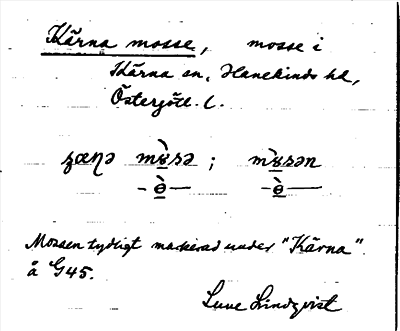 Kärna mosse, mosse i
Kärna sn, Hanekinds hd,
Östergötl. l.
mosse ;
Mossen tydligt markerad under "Kärna"
å G45.
Sune Lindqvist